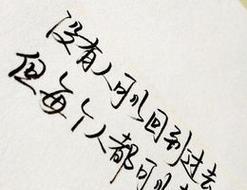 没有人可以回到过去
但每个人都可以